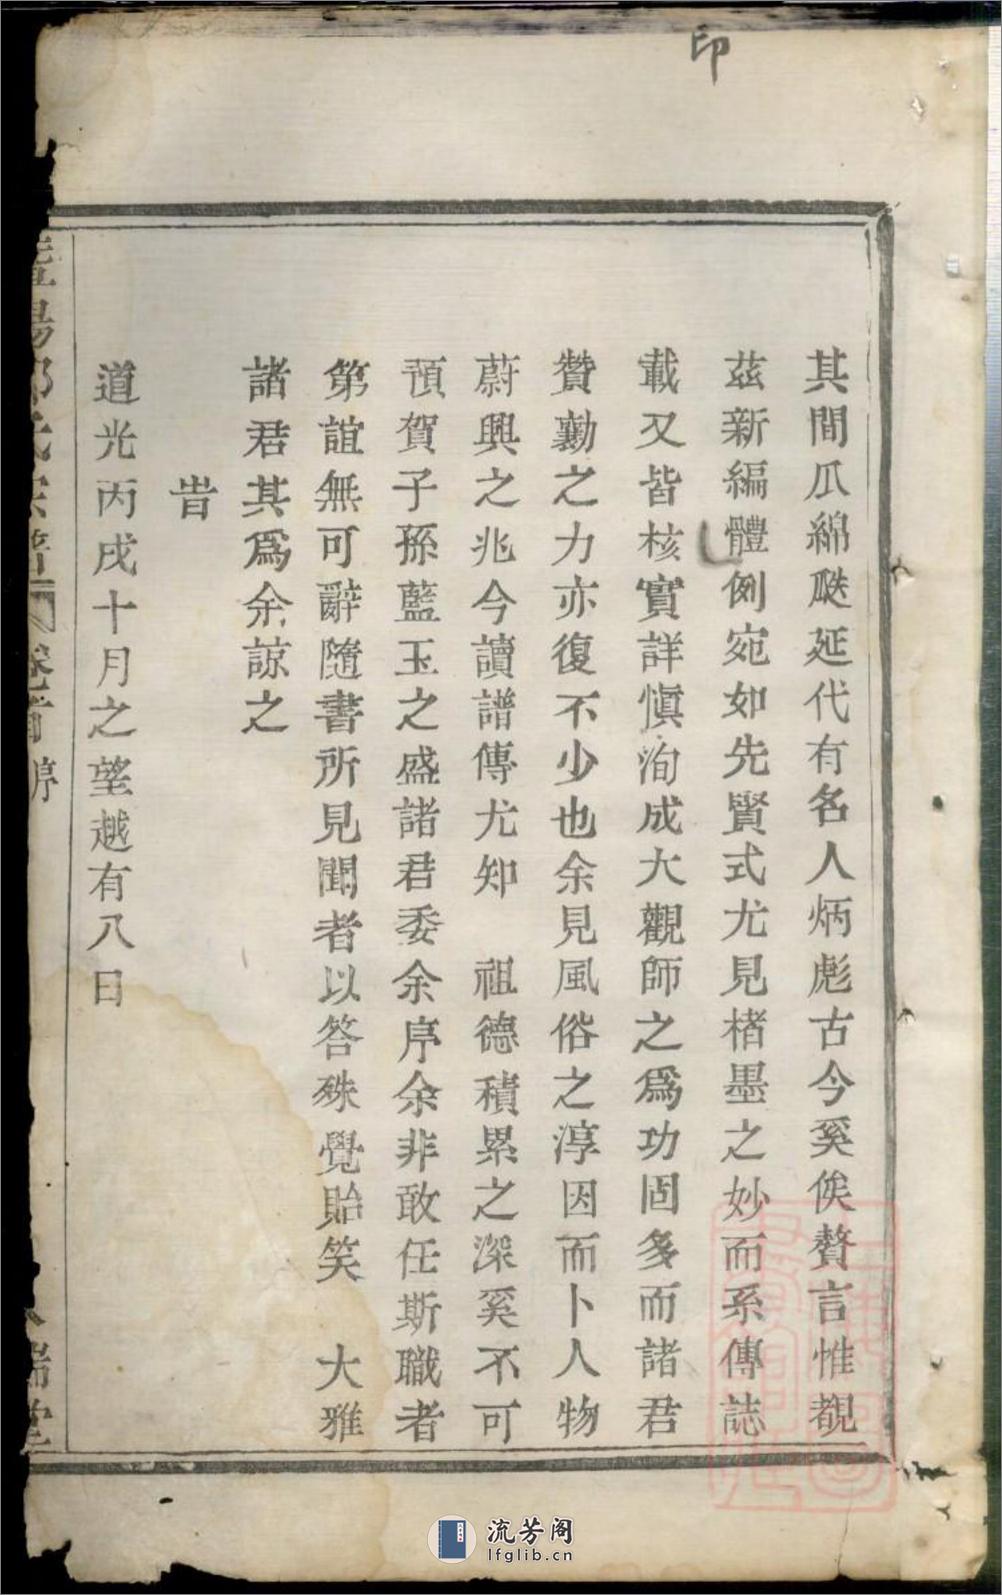 印
其間瓜綿瓞延代有名人炳彪古今奚俟贅言惟覩
茲新編體例宛如先賢式尤見楮墨之妙而系傳誌
載又皆核實詳慎洵成大觀師之爲功固多而諸君
贊勷之力亦復不少也余見風俗之淳因而卜人物
蔚興之兆今讀譜傳尤知　祖德積累之深奚不可
預賀子孫藍玉之盛諸君委余序余非敢任斯職者
第誼無可辭隨書所見聞者以答殊覺貽笑　大雅
諸君其爲余諒之
旹
道光丙戌十月之望越有八日
陽 氏宗譜 卷首 序
流芳阁
lfglib.cn